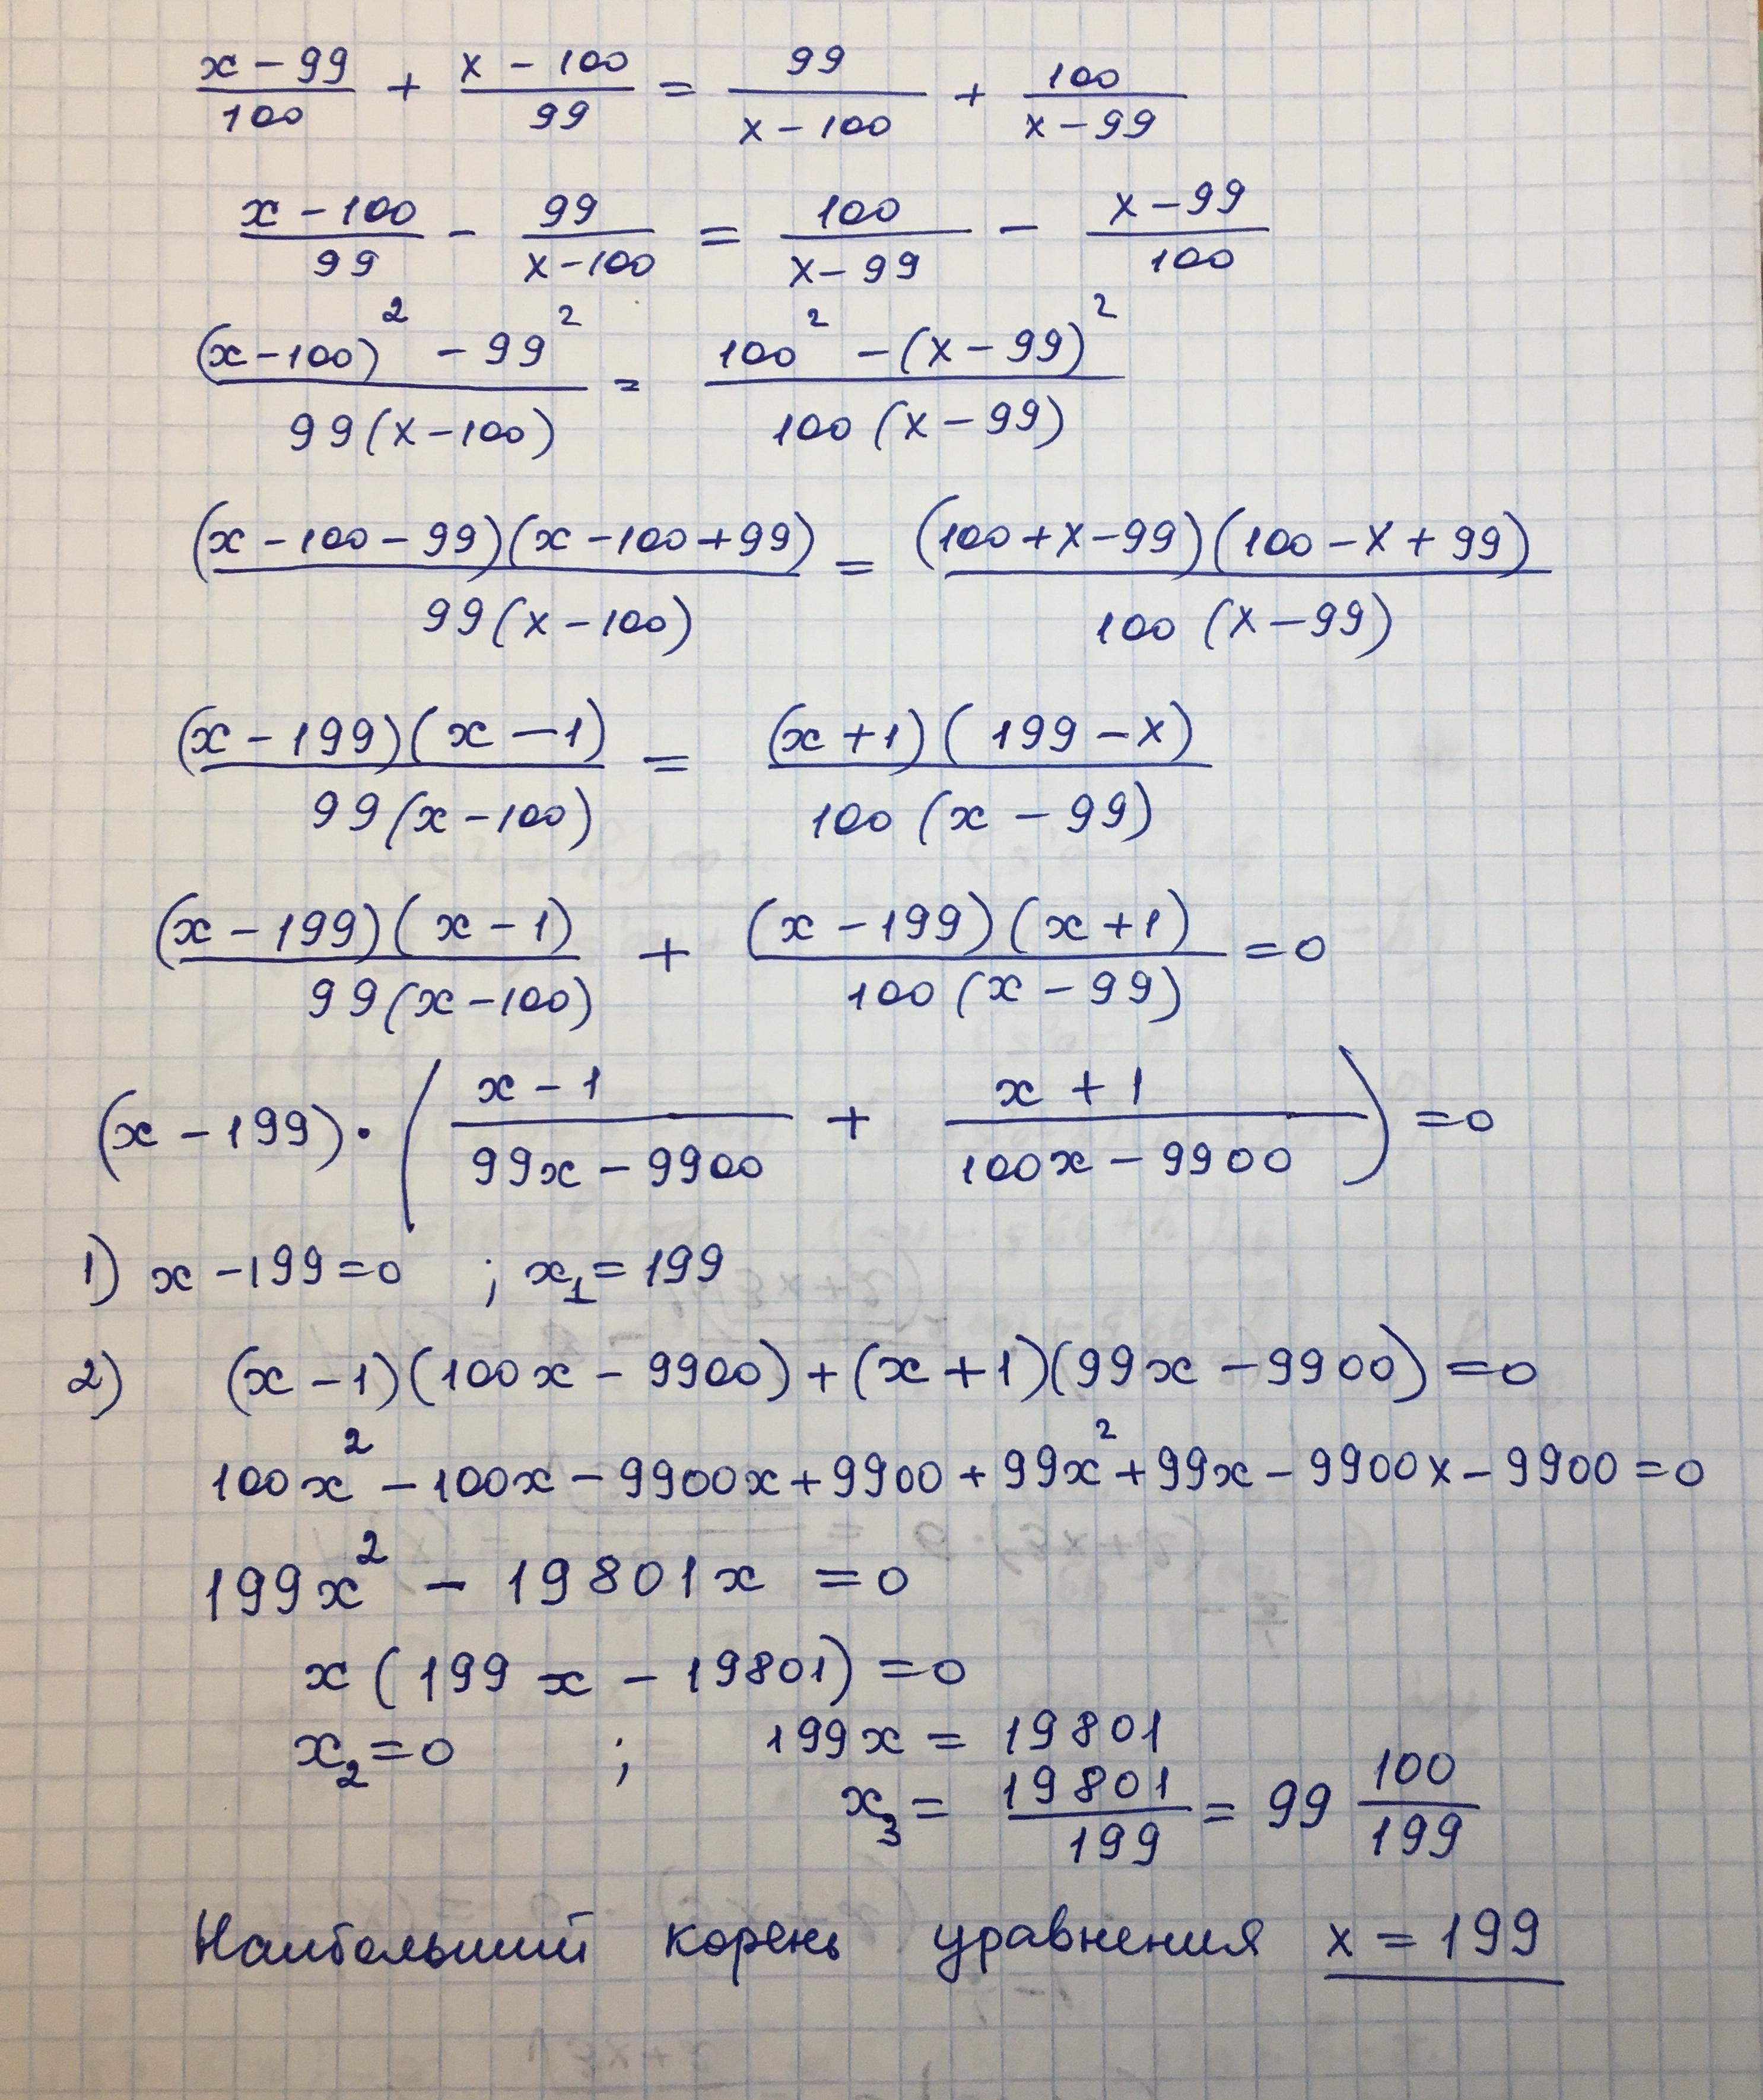 (x-99)/100 + (x-100)/99 = 99/(x-100) + 100/(x-99)
(x-100)/99 - 99/(x-100) = 100/(x-99) - (x-99)/100
((x-100)² - 99²)/(99(x-100)) = (100² - (x-99)²)/(100(x-99))
((x-100-99)(x-100+99))/(99(x-100)) = ((100+x-99)(100-x+99))/(100(x-99))
((x-199)(x-1))/(99(x-100)) = ((x+1)(199-x))/(100(x-99))
((x-199)(x-1))/(99(x-100)) + ((x-199)(x+1))/(100(x-99)) = 0
(x-199)·((x-1)/(99x-9900) + (x+1)/(100x-9900)) = 0
1) x-199=0 ; x₁=199
2) (x-1)(100x-9900)+(x+1)(99x-9900)=0
100x²-100x-9900x+9900+99x²+99x-9900x-9900=0
199x² - 19801x = 0
x(199x-19801)=0
x₂=0 ; 199x = 19801
x₃ = 19801/199 = 99 100/199
Наибольший корень уравнения x = 199